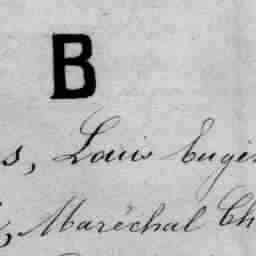 B
s, Louis Eugè
, Maréchal Ch